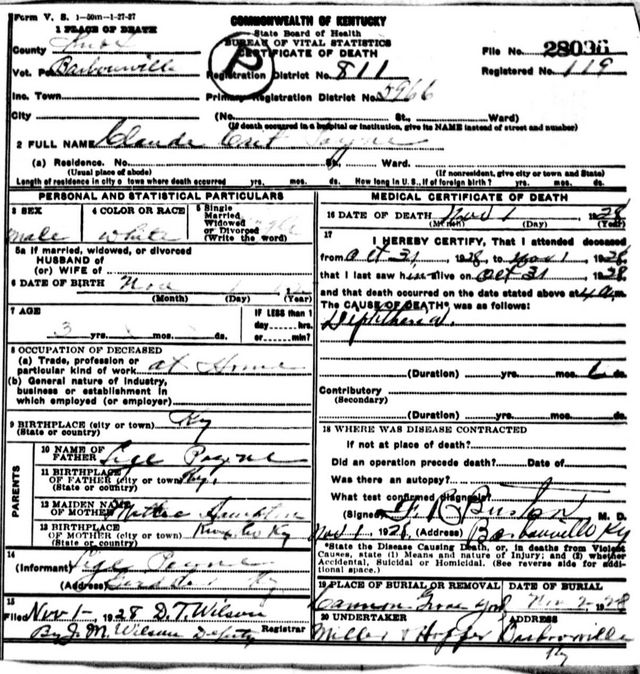 Form V. S. 1-50m-1-27-27
COMMONWEALTH OF KENTUCKY
State Board of Health
BUREAU OF VITAL STATISTICS
CERTIFICATE OF DEATH
1 PLACE OF DEATH
County Knox
Vot. Pct. Barbourville
Inc. Town
City
(No. St., Ward)
(If death occurred in a hospital or institution, give its NAME instead of street and number)
File No. 28036
Registered No. 119
R
Registration District No. 811
Primary Registration District No. 5966
2 FULL NAME Claude Payne
(a) Residence. No. St. Ward.
(Usual place of abode) (If nonresident, give city or town and State)
Length of residence in city or town where death occurred yrs. mos. ds. How long in U. S., if of foreign birth? yrs. mos. ds.
PERSONAL AND STATISTICAL PARTICULARS
3 SEX
male
4 COLOR OR RACE
white
5 Single
Married
Widowed
or Divorced
(Write the word)
5a If married, widowed, or divorced
HUSBAND of
(or) WIFE of
6 DATE OF BIRTH Nov
(Month) (Day) (Year)
7 AGE
3 yrs. mos. ds.
IF LESS than 1
day hrs.
or min.?
8 OCCUPATION OF DECEASED
(a) Trade, profession or
particular kind of work at Home
(b) General nature of industry,
business or establishment in
which employed (or employer)
9 BIRTHPLACE (city or town) Ky
(State or country)
PARENTS
10 NAME OF
FATHER Lige Payne
11 BIRTHPLACE
OF FATHER (city or town) Ky.
(State or country)
12 MAIDEN NAME
OF MOTHER
13 BIRTHPLACE
OF MOTHER (city or town) Knox Co Ky
(State or country)
14
(Informant) Lige Payne
(Address) Ky
15
Filed Nov 1- 1928 D. T. Wilson
By J. M. Wilson Deputy Registrar
MEDICAL CERTIFICATE OF DEATH
16 DATE OF DEATH Nov 1 1928
(Month) (Day) (Year)
17
I HEREBY CERTIFY, That I attended deceased
from Oct 31, 1928 to Nov 1 1928
that I last saw him alive on Oct 31 1928
and that death occurred on the date stated above at 4 a m.
The CAUSE OF DEATH* was as follows:
Diptheria.
(Duration) yrs. mos. ds.
Contributory
(Secondary)
(Duration) yrs. mos. ds.
18 WHERE WAS DISEASE CONTRACTED
If not at place of death?
Did an operation precede death? Date of
Was there an autopsy?
What test confirmed diagnosis?
(Signed) M. D.
Nov 1 1928 (Address) Barbourville Ky
*State the Disease Causing Death, or, in deaths from Violent
Causes, state (1) Means and nature of Injury; and (2) whether
Accidental, Suicidal or Homicidal. (See reverse side for addi-
tional space.)
19 PLACE OF BURIAL OR REMOVAL
DATE OF BURIAL
Cannon Grave yard Nov 2 1928
20 UNDERTAKER
ADDRESS
Miller & Hopper Barbourville
Ky